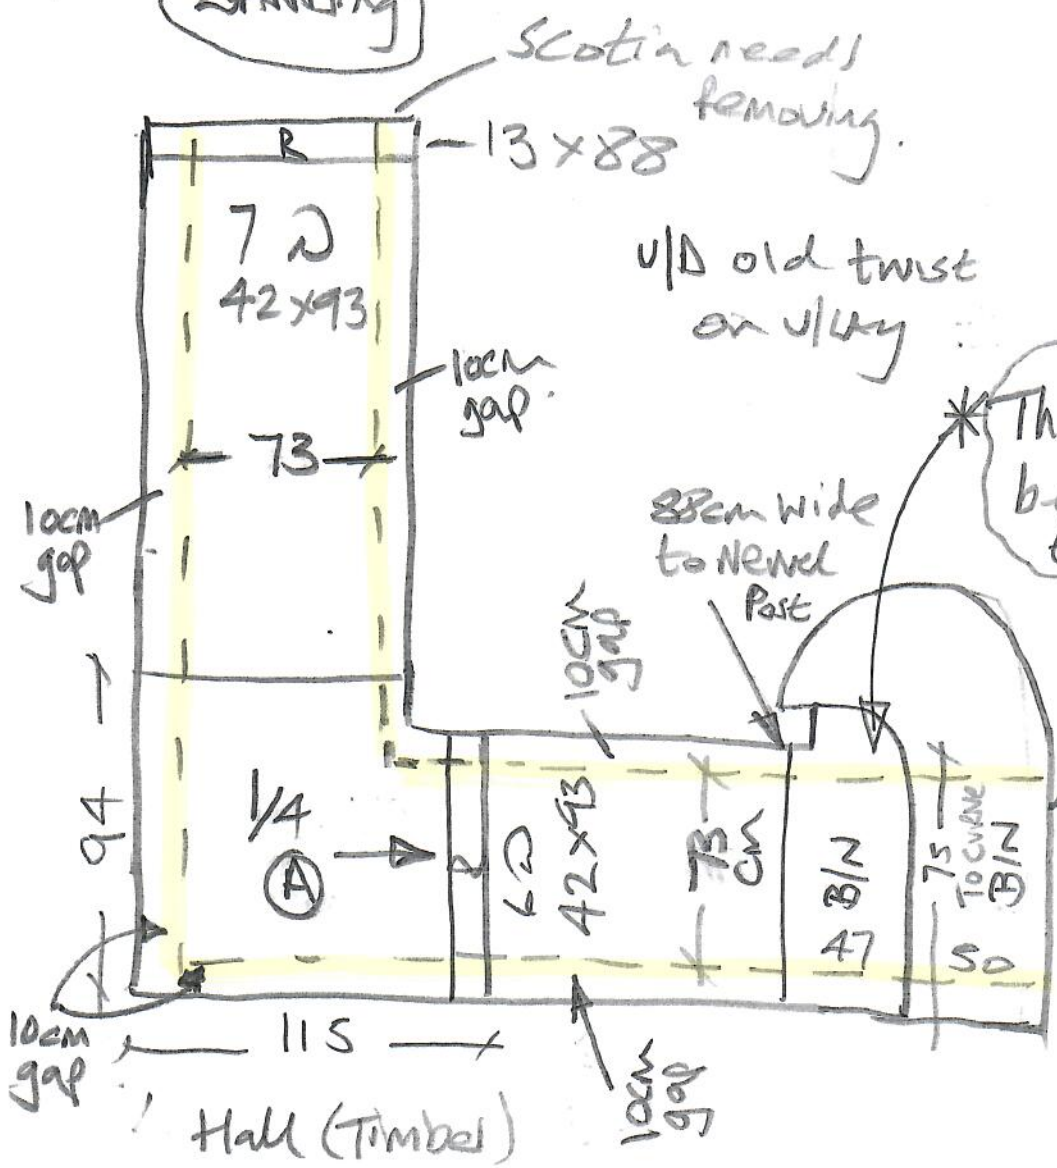 Scotia needs
removing.
R
13 x 88
7
42x93
U/D old twist
on U/Lay
10cm
gap
73
10cm
gap
88cm wide
to Newel
Post
Th
10cm
gap
94
1/4
A
R
6
42x93
73
cm
B/N
47
75
TO CURVE
B/N
50
10cm
gap
115
10cm
gap
Hall (Timber)